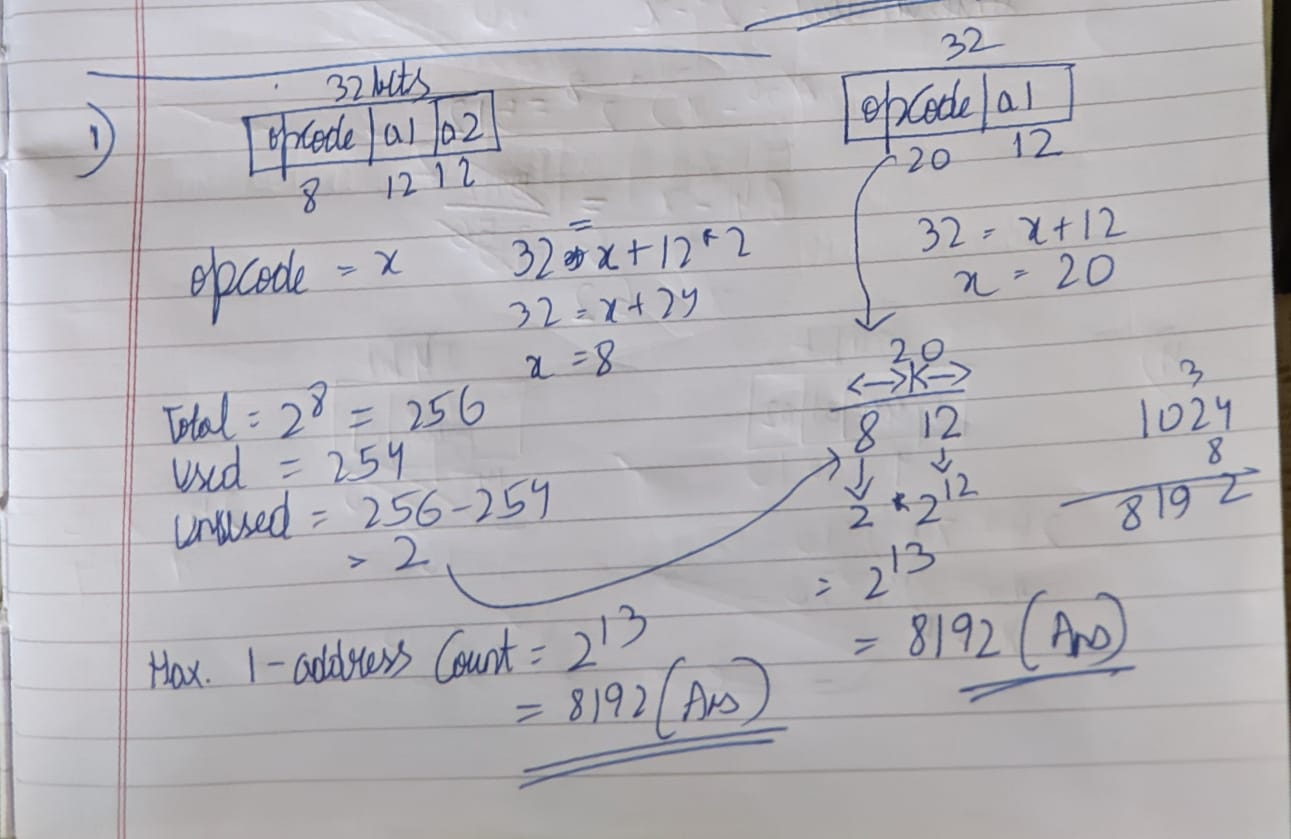 1)
32 bits
opcode | a1 | a2
8 12 12
opcode = x
32 = x + 12 * 2
32 = x + 24
x = 8
Total = 2^8 = 256
Used = 254
unused = 256 - 254
= 2
Max. 1-address Count = 2^13
= 8192 (Ans)
32
opcode | a1
20 12
32 = x + 12
x = 20
20
8 12
2 * 2^12
= 2^13
= 8192 (Ans)
3
1024
8
8192